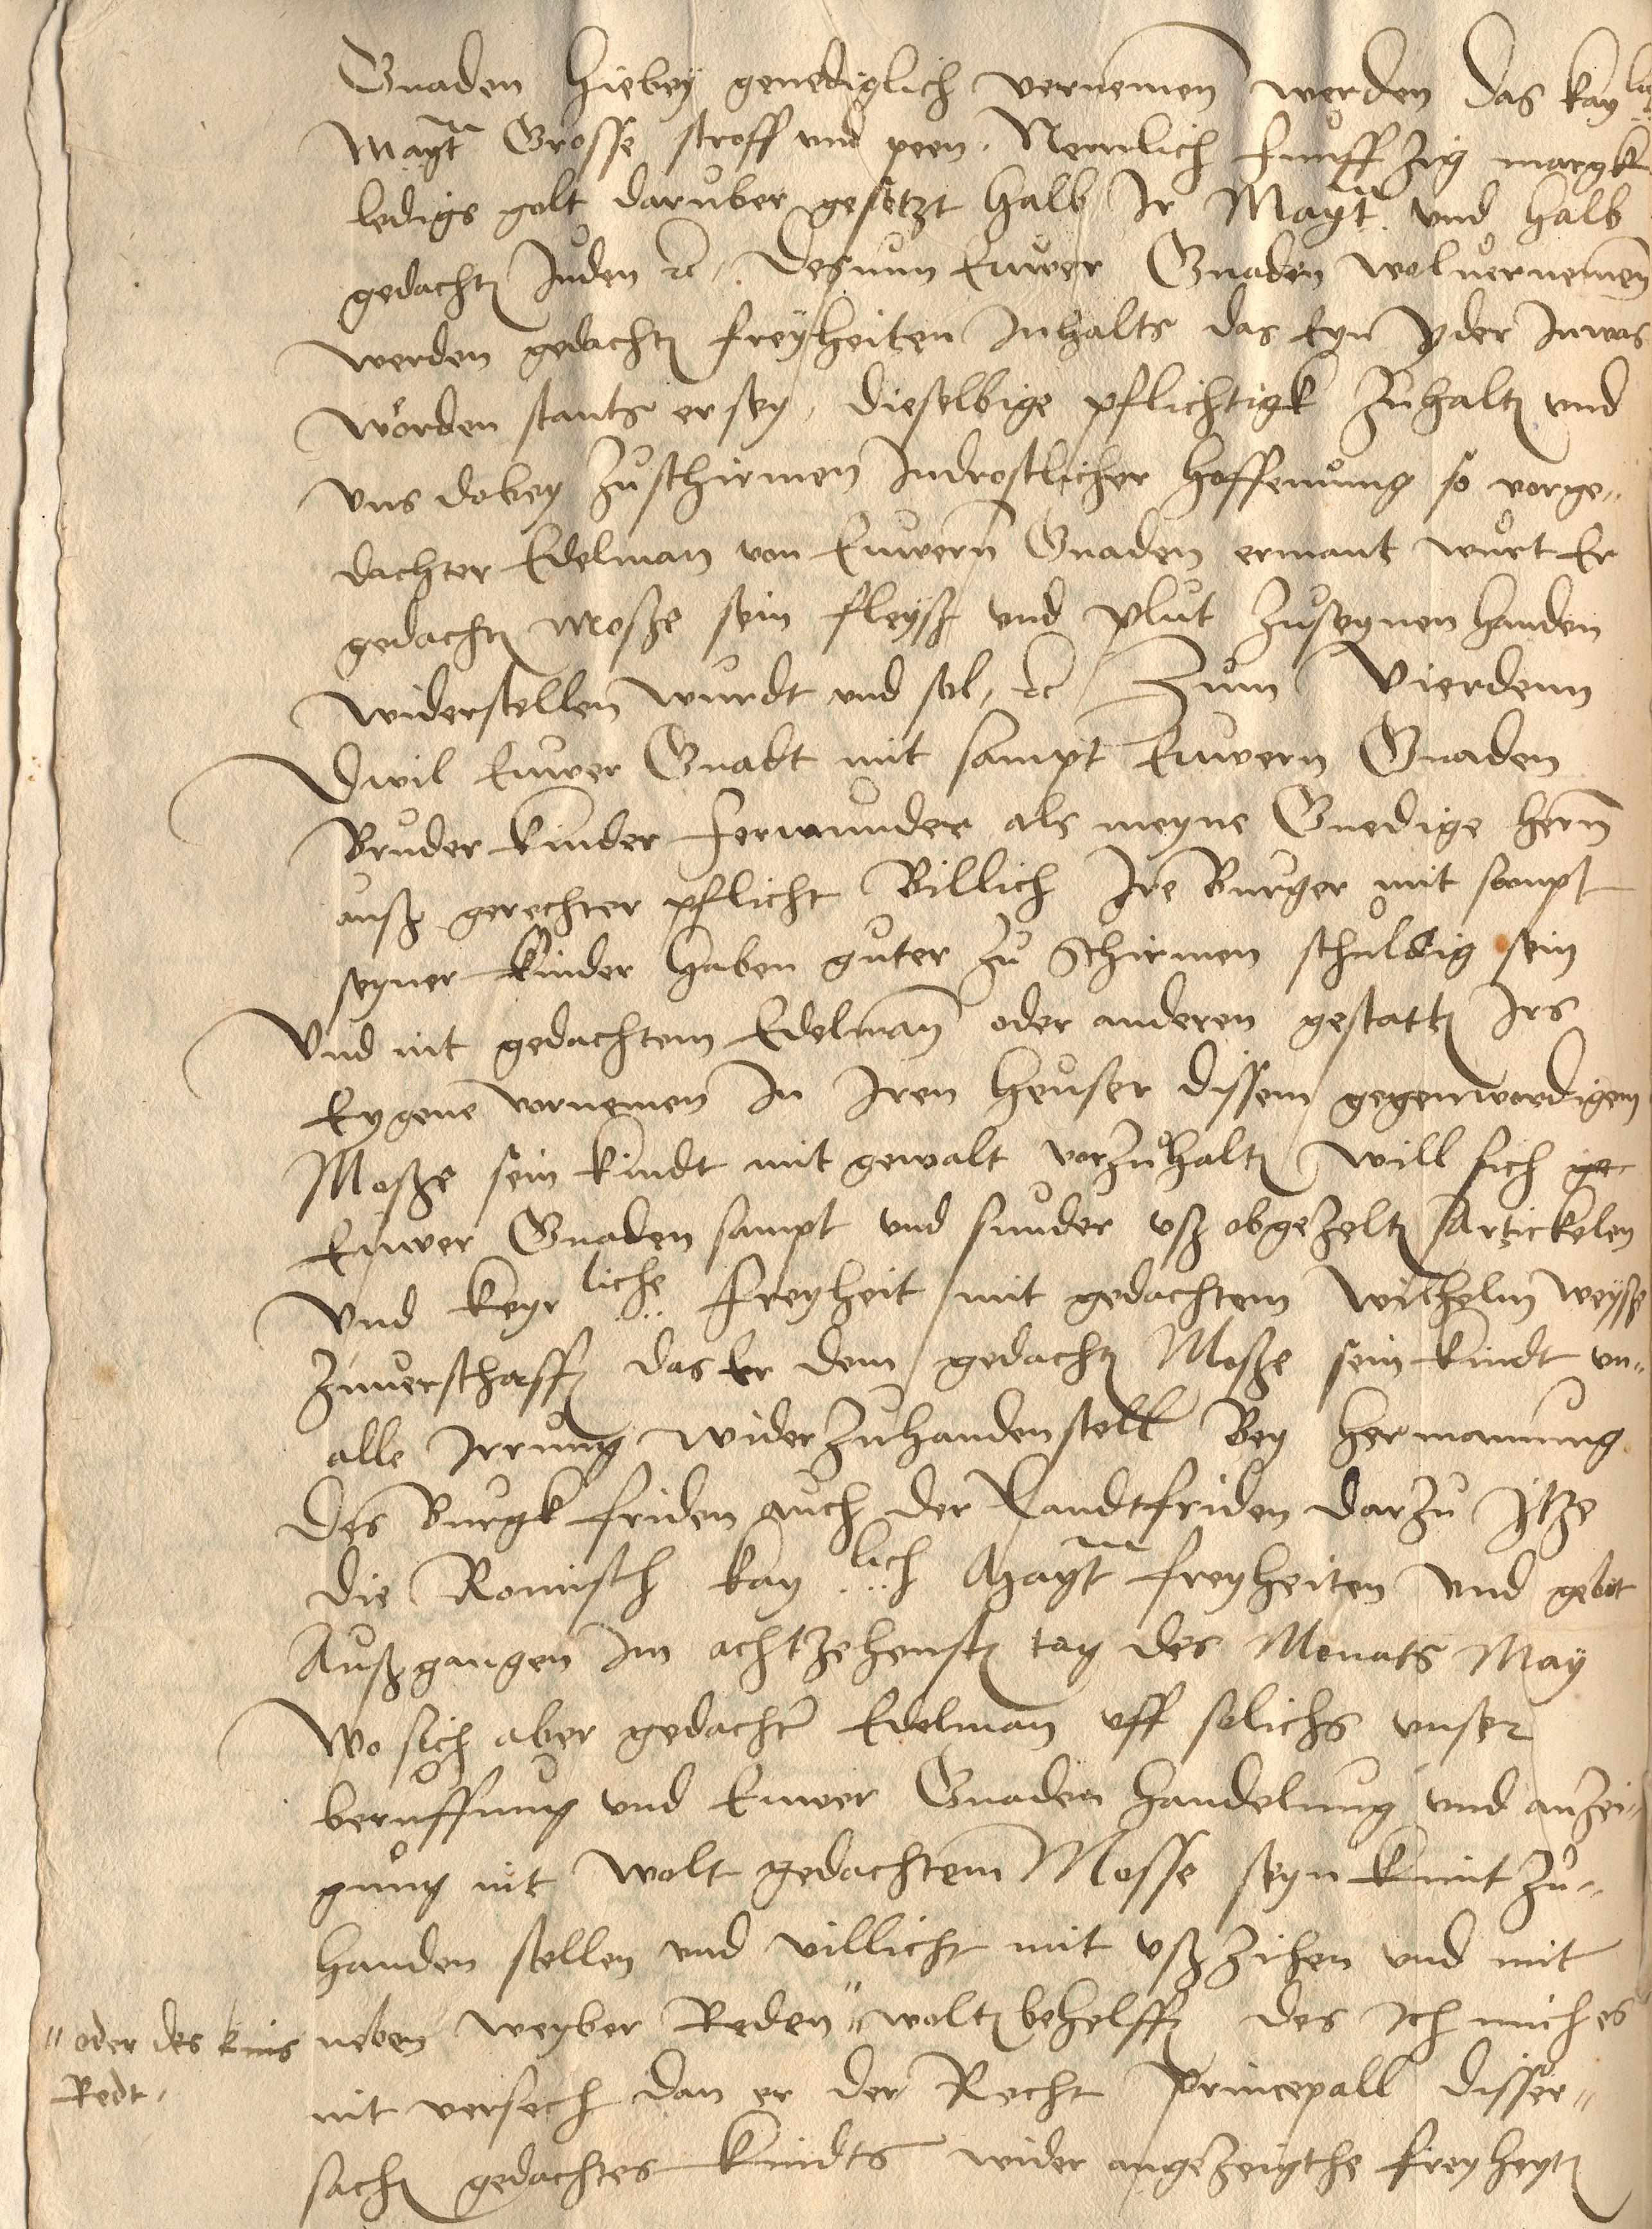 Gnaden hiebey genediglich vernemen werden das kay lic
Mayt Grosse stroff vnd peen. Nemlich funffzig margkt
ledigs golt daruber gesetzt halb Ir Mayt. vnd halb
gedacht Juden etc. Des nun Euwer Gnaden wol vernemen
werden gedacht freyheiten Inhalts das Eyn yder Inwas
worden stants er sey, dieselbige pflichtigk zuhalt vnd
vns dobey zuschirmen In drostlicher hoffenung so vorge„
dachter Edelman von Euwern Gnaden ermant wurt Er
gedacht Mosze sein fleysz vnd plut zuseynen handen
widerstellen wurdt vnd sol, etc Zum Vierdenn
Dwil Euwer Gnadt mit sampt Euwern Gnaden
Bruder kinder fermunder als meyne Gnedige hern
ausz gerechter pflicht Billich Ire Burger mit sampt
seyner kinder haben guter zu Schirmen schuldig sein
Vnd nit gedachtem Edelman oder anderen gestatt Irs
Eygene vornemen In Iren heuser dissem gegenwordigem
Mosze sein kindt mit gewalt vorzuhalt will sich ge
Euwer Gnaden sampt vnd sunder vsz obgezelt Artickelen
Vnd keyr liche freyheit mit gedachtem Wilhelm weysz
zuuerschaff das Er dem gedacht Mosze sein kindt vn„
alle Irrung wider zuhanden stell Bey hermanung
Des Burgk friden auch der Landtfriden darzu Itze
die Romisch kay lich Mayt freyheiten vnd gebot
Auszgangen Im achtzehenst tag des Monats May
Wo sich aber gedacht Edelman vff solichs vnser
beruffung vnd Euwer Gnaden handelung vnd anzei„
gung nit wolt gedachtem Mosse seyn kint zu„
handen stellen vnd villicht mit vszzihen vnd mit
neben weyber Reden" wolt behelff des Ich mich es
" oder des kins
Redt.
nit versech dan er der Recht princepall disser„
sach gedachtes kindts wider angezeigthe freyheyt